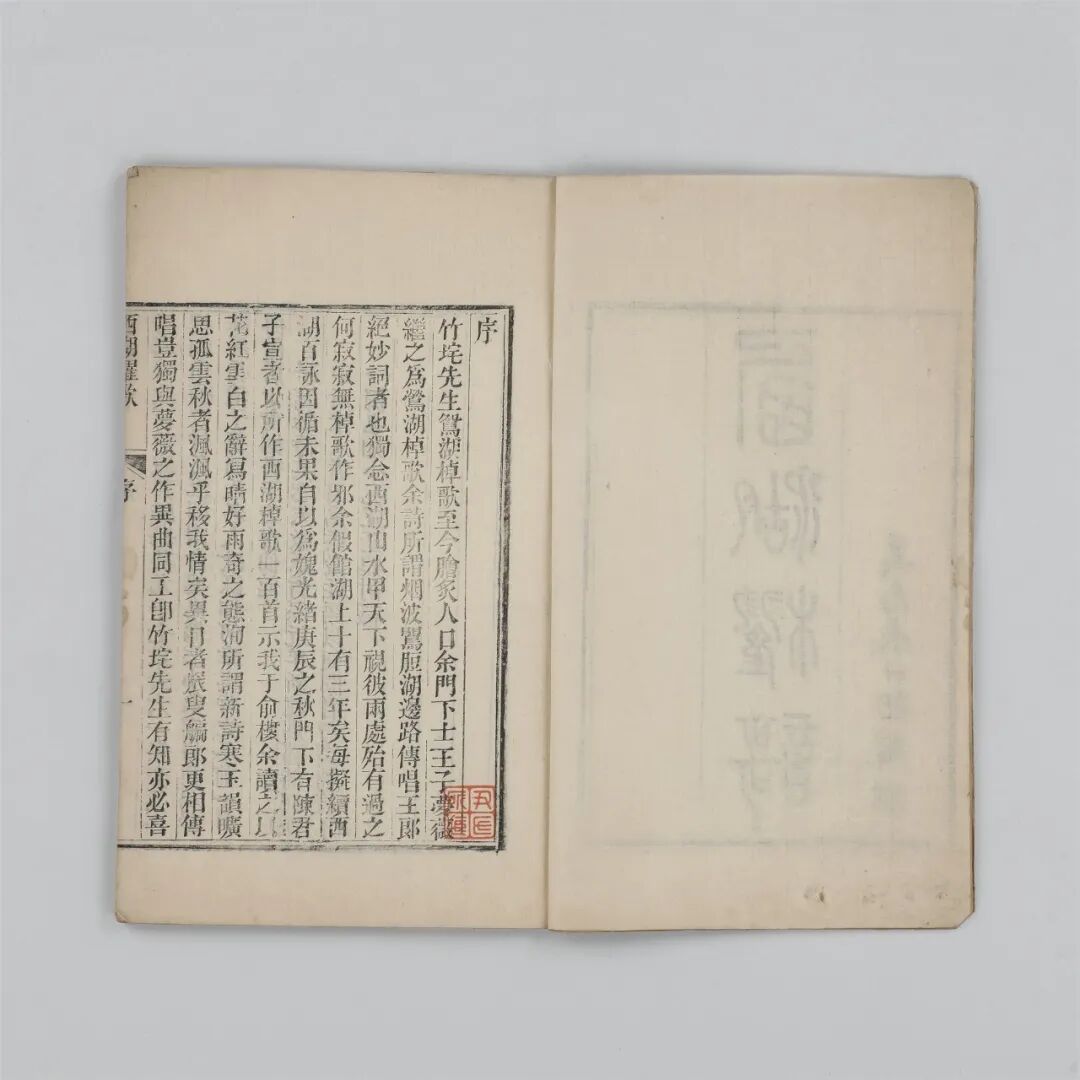 序
竹垞先生鴛湖棹歌至今膾炙人口余門下士王子夢薇
繼之爲鶯湖棹歌余詩所謂烟波鷖脰湖邊路傳唱王郎
絕妙詞者也獨念西湖山水甲天下視彼兩處殆有過之
何寂寂無棹歌作邪余假館湖上十有三年矣每擬續西
湖百詠因循未果自以爲媿光緖庚辰之秋門下有陳君
子宣者以所作西湖棹歌一百首示我于俞樓余讀之以
花紅雲白之辭寫晴好雨奇之態洵所謂新詩寒玉韻曠
思孤雲秋者渢渢乎移我情矣異日者漁叟艑郎更相傳
唱豈獨與夢薇之作異曲同工卽竹垞先生有知亦必喜
西湖櫂歌
序
一